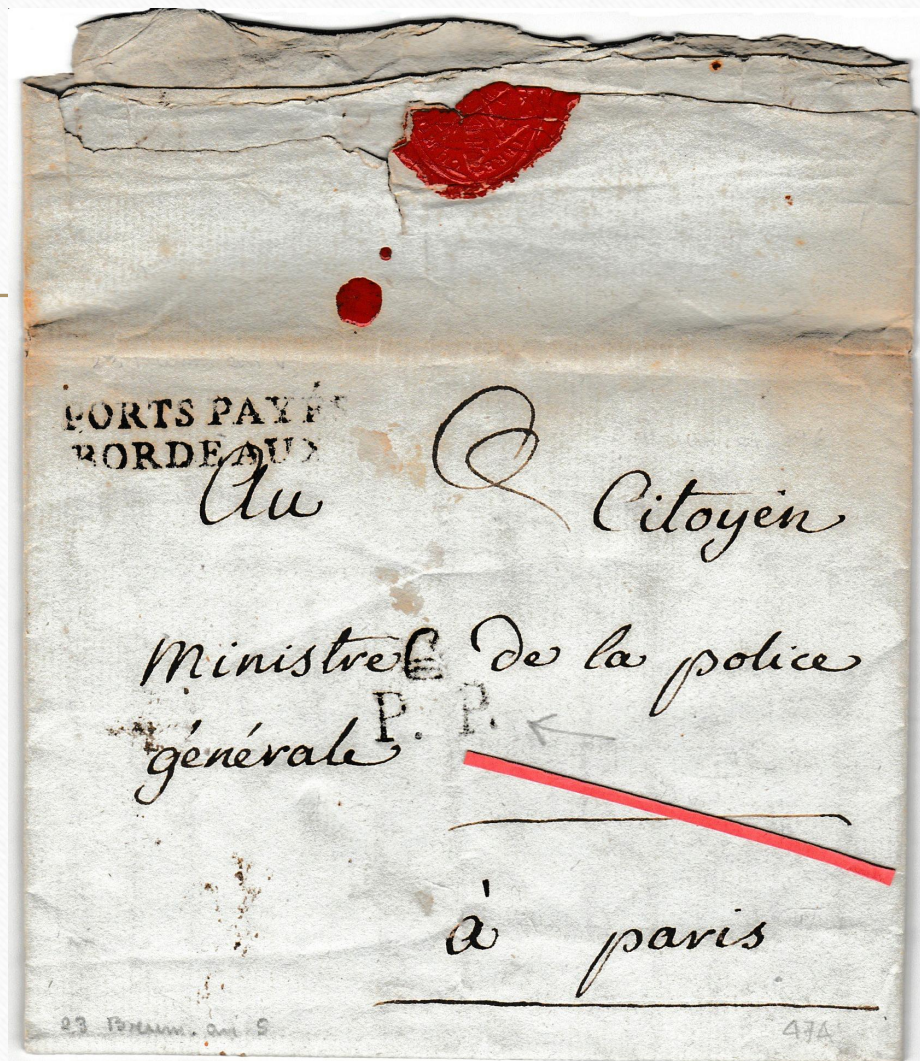 PORTS PAYÉS
BORDEAUX
Au Citoyen
Ministre de la police
P. P.
générale
à paris
23 Brum. an 5
474